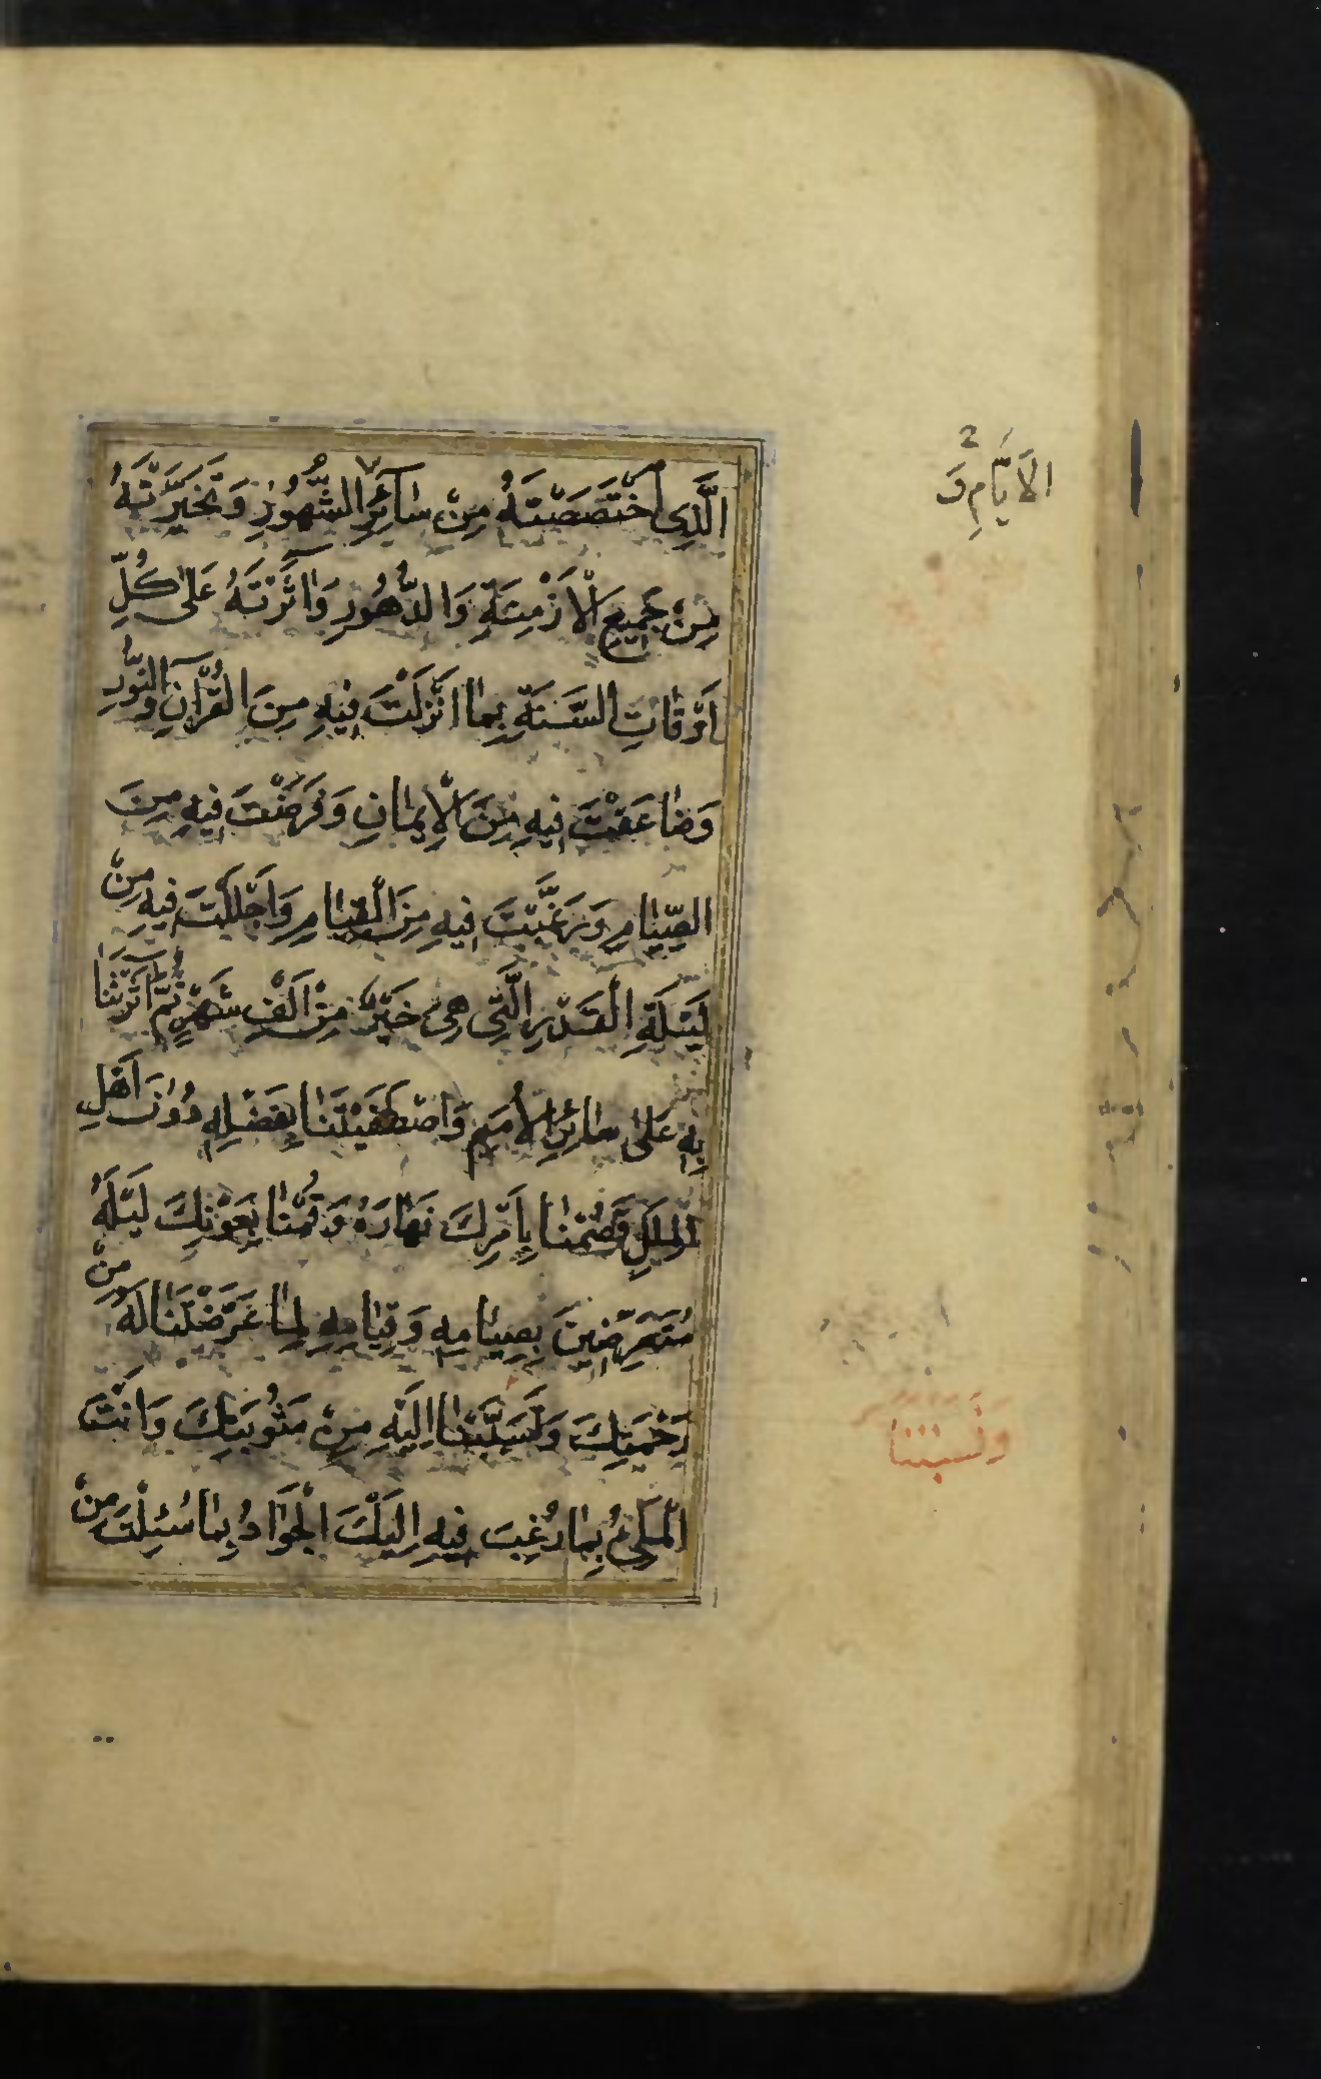 الَّذِى اخْتَصَصْتَهُ مِنْ سَآئِرِ الشُّهُورِ وَتَخَيَّرْتَهُ
مِنْ جَمِيعِ الْاَزْمِنَةِ وَالدُّهُورِ وَاٰثَرْتَهُ عَلىٰ كُلِّ
اَوْقَاتِ السَّنَةِ بِمٰا اَنْزَلْتَ فِيهِ مِنَ الْقُرْاٰنِ وَالنُّورِ
وَضٰاعَفْتَ فِيهِ مِنَ الْاِيمٰانِ وَفَرَضْتَ فِيهِ مِنَ
الصِّيٰامِ وَرَغَّبْتَ فِيهِ مِنَ الْقِيٰامِ وَاَجْلَلْتَ فِيهِ مِنْ
لَيْلَةِ الْقَدْرِ الَّتِى هِىَ خَيْرٌ مِنْ اَلْفِ شَهْرٍ ثُمَّ اٰثَرْتَنٰا
بِهِ عَلىٰ سٰائِرِ الْاُمَمِ وَاصْطَفَيْتَنٰا بِفَضْلِهِ دُوٰنَ اَهْلِ
الْمِلَلِ فَصُمْنٰا بِاَمْرِكَ نَهٰارَهُ وَقُمْنٰا بِعَوْنِكَ لَيْلَهُ
مُتَعَرِّضِينَ بِصِيٰامِهِ وَقِيٰامِهِ لِمٰا عَرَّضْتَنٰا لَهُ مِنْ
رَحْمَتِكَ وَتَسَبَّبْنٰا اِلَيْهِ مِنْ مَثُوبَتِكَ وَاَنْتَ
الْمَلِىءُ بِمٰا رُغِبَ فِيهِ اِلَيْكَ الْجَوٰادُ بِمٰا سُئِلْتَ مِنْ
الْاَيَّامِ وَ
وَنَسَبْتَنٰا